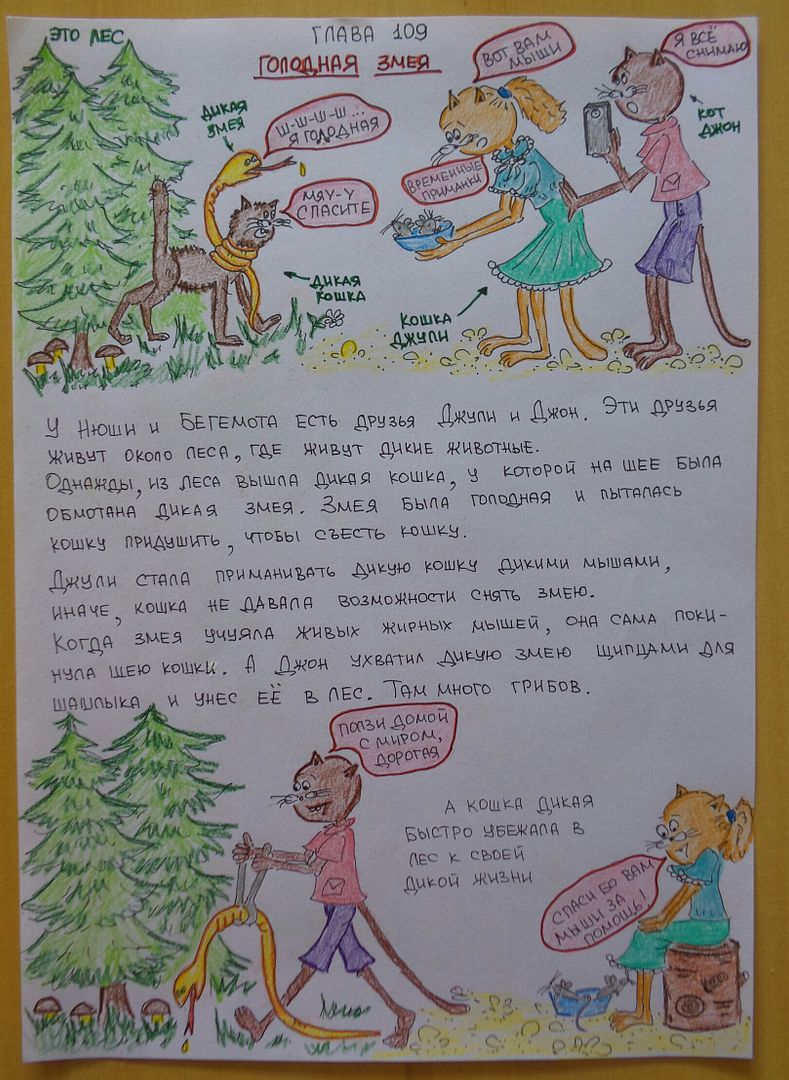 ЭТО ЛЕС
ГЛАВА 109
ГОЛОДНАЯ ЗМЕЯ
ДИКАЯ
ЗМЕЯ
Ш-Ш-Ш-Ш...
Я ГОЛОДНАЯ
МЯУ-У
СПАСИТЕ
ДИКАЯ
КОШКА
ВОТ ВАМ
МЫШИ
ВРЕМЕННЫЕ
ПРИМАНКИ
КОШКА
ДЖУЛИ
Я ВСЁ
СНИМАЮ
КОТ
ДЖОН
У НЮШИ И БЕГЕМОТА ЕСТЬ ДРУЗЬЯ ДЖУЛИ И ДЖОН. ЭТИ ДРУЗЬЯ
ЖИВУТ ОКОЛО ЛЕСА, ГДЕ ЖИВУТ ДИКИЕ ЖИВОТНЫЕ.
ОДНАЖДЫ, ИЗ ЛЕСА ВЫШЛА ДИКАЯ КОШКА, У КОТОРОЙ НА ШЕЕ БЫЛА
ОБМОТАНА ДИКАЯ ЗМЕЯ. ЗМЕЯ БЫЛА ГОЛОДНАЯ И ПЫТАЛАСЬ
КОШКУ ПРИДУШИТЬ, ЧТОБЫ СЪЕСТЬ КОШКУ.
ДЖУЛИ СТАЛА ПРИМАНИВАТЬ ДИКУЮ КОШКУ ДИКИМИ МЫШАМИ,
ИНАЧЕ, КОШКА НЕ ДАВАЛА ВОЗМОЖНОСТИ СНЯТЬ ЗМЕЮ.
КОГДА ЗМЕЯ УЧУЯЛА ЖИВЫХ ЖИРНЫХ МЫШЕЙ, ОНА САМА ПОКИ-
НУЛА ШЕЮ КОШКИ. А ДЖОН УХВАТИЛ ДИКУЮ ЗМЕЮ ЩИПЦАМИ ДЛЯ
ШАШЛЫКА И УНЕС ЕЁ В ЛЕС. ТАМ МНОГО ГРИБОВ.
ПОЛЗИ ДОМОЙ
С МИРОМ,
ДОРОГАЯ
А КОШКА ДИКАЯ
БЫСТРО УБЕЖАЛА В
ЛЕС К СВОЕЙ
ДИКОЙ ЖИЗНИ
СПАСИБО ВАМ
МЫШИ ЗА
ПОМОЩЬ!